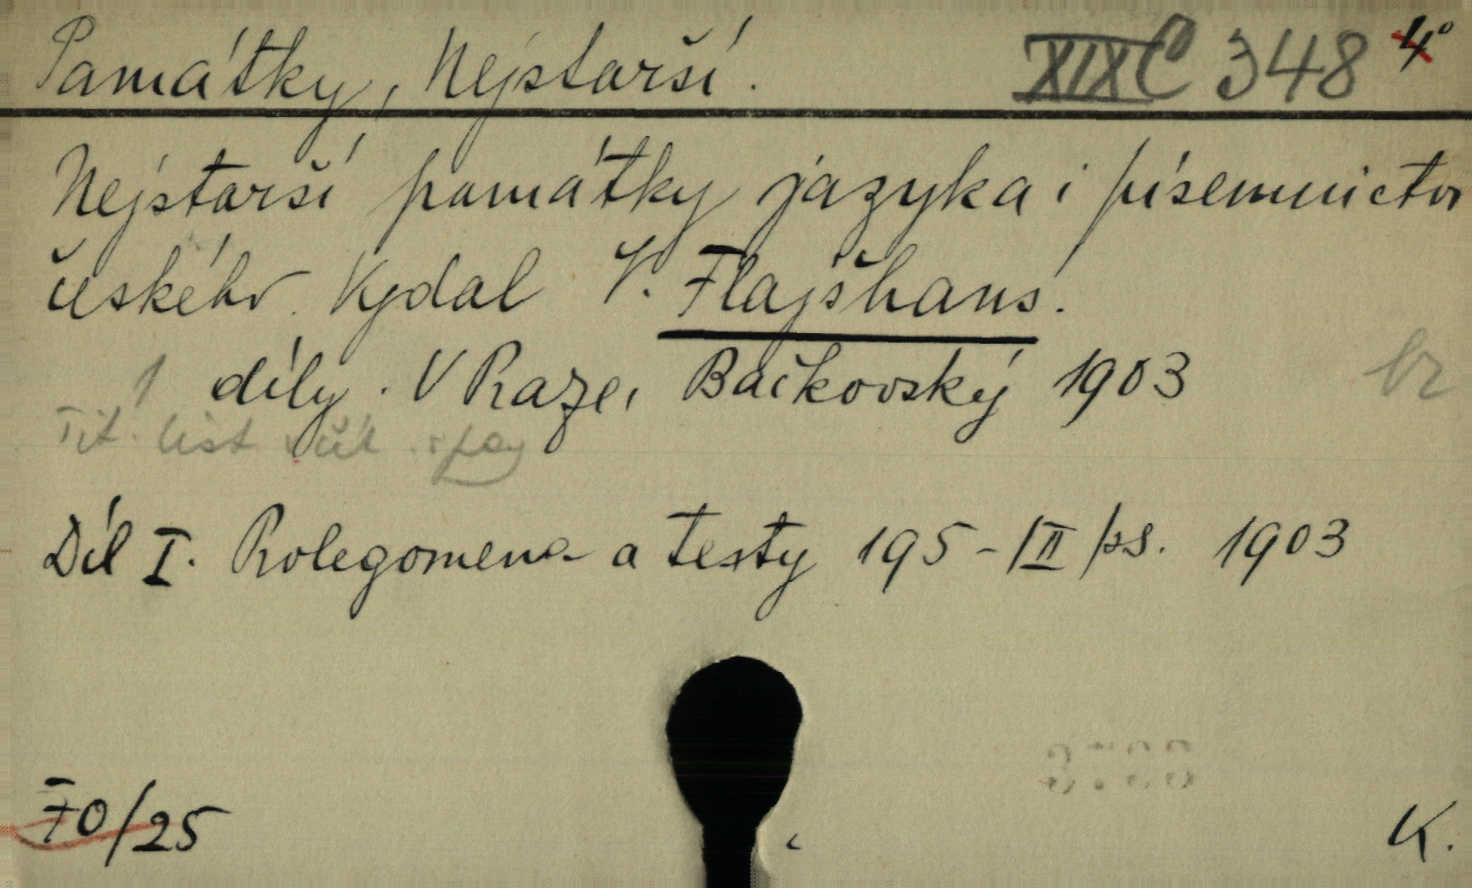 Památky, Nejstarší. XIX C 348 4°
Nejstarší památky jazyka i písemnictví
českého. Vydal V. Flajšhans.
1 díly. V Praze, Bačkovský 1903 br
Tit. list
Díl I. Prolegomena a texty 195-/II/ss. 1903
FO/25 K.